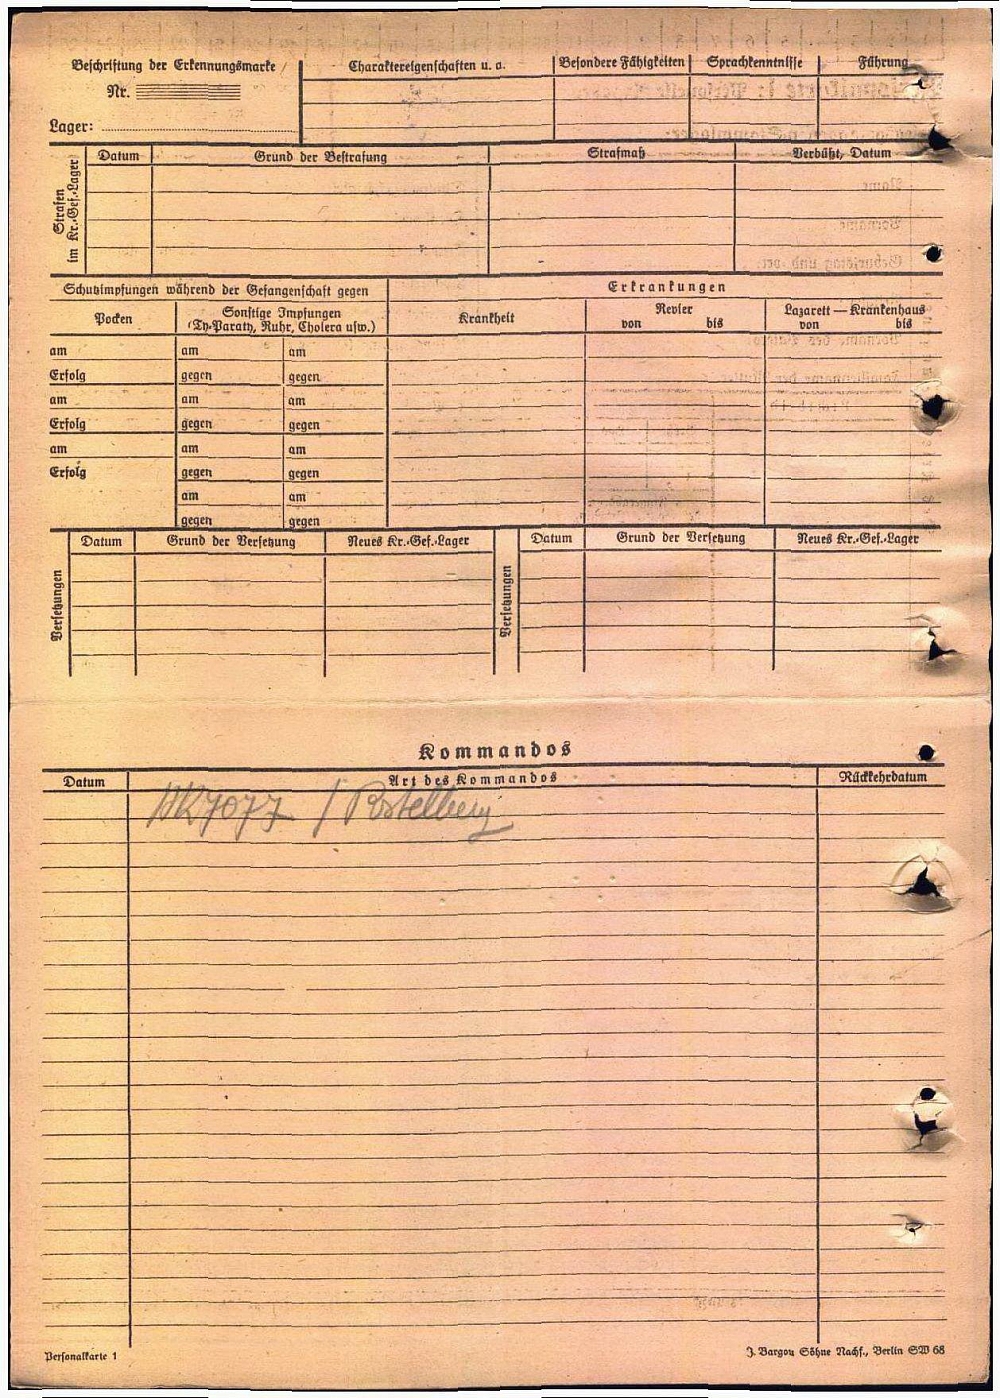 Beschriftung der Erkennungsmarke
Nr.
Lager:
Charaktereigenschaften u. a.
Besondere Fähigkeiten
Sprachkenntnisse
Führung
Strafen im Kr.-Gef.-Lager
Datum
Grund der Bestrafung
Strafmaß
Verbüßt, Datum
Schutzimpfungen während der Gefangenschaft gegen
Erkrankungen
Pocken
Sonstige Impfungen
(Ty.-Paraty, Ruhr, Cholera usw.)
Krankheit
Revier
von bis
Lazarett — Krankenhaus
von bis
am am am
Erfolg gegen gegen
am am am
Erfolg gegen gegen
am am am
Erfolg gegen gegen
am am
gegen gegen
Versetzungen
Datum Grund der Versetzung Neues Kr.-Gef.-Lager
Versetzungen
Datum Grund der Versetzung Neues Kr.-Gef.-Lager
Kommandos
Datum Art des Kommandos Rückkehrdatum
7077 / Postelberg
Personalkarte 1
J. Bargou Söhne Nachf., Berlin SW 68